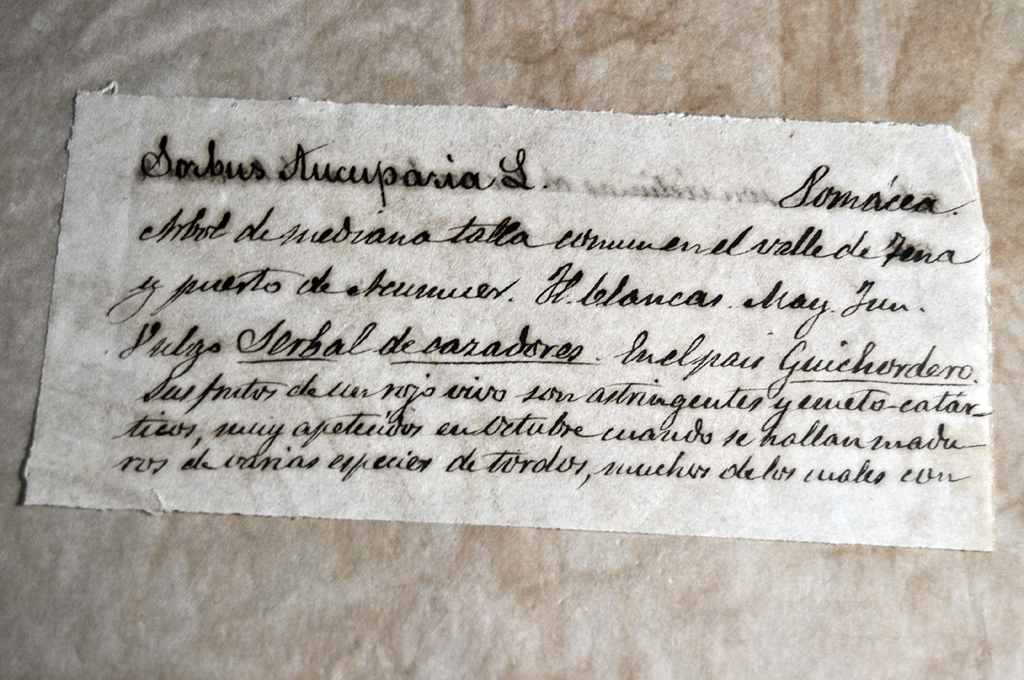 Sorbus Aucuparia L. Pomácea.
Arbol de mediana talla comun en el valle de Tena
y puerto de Acumuer. Fl. blancas. May. Jun.
Vulgo Serbal de cazadores. En el pais Guichordero.
Sus frutos de un rojo vivo son astringentes y emeto-catár-
ticos, muy apetecidos en Octubre cuando se hallan madu
ros de varias especies de tordos, muchos de los cuales con